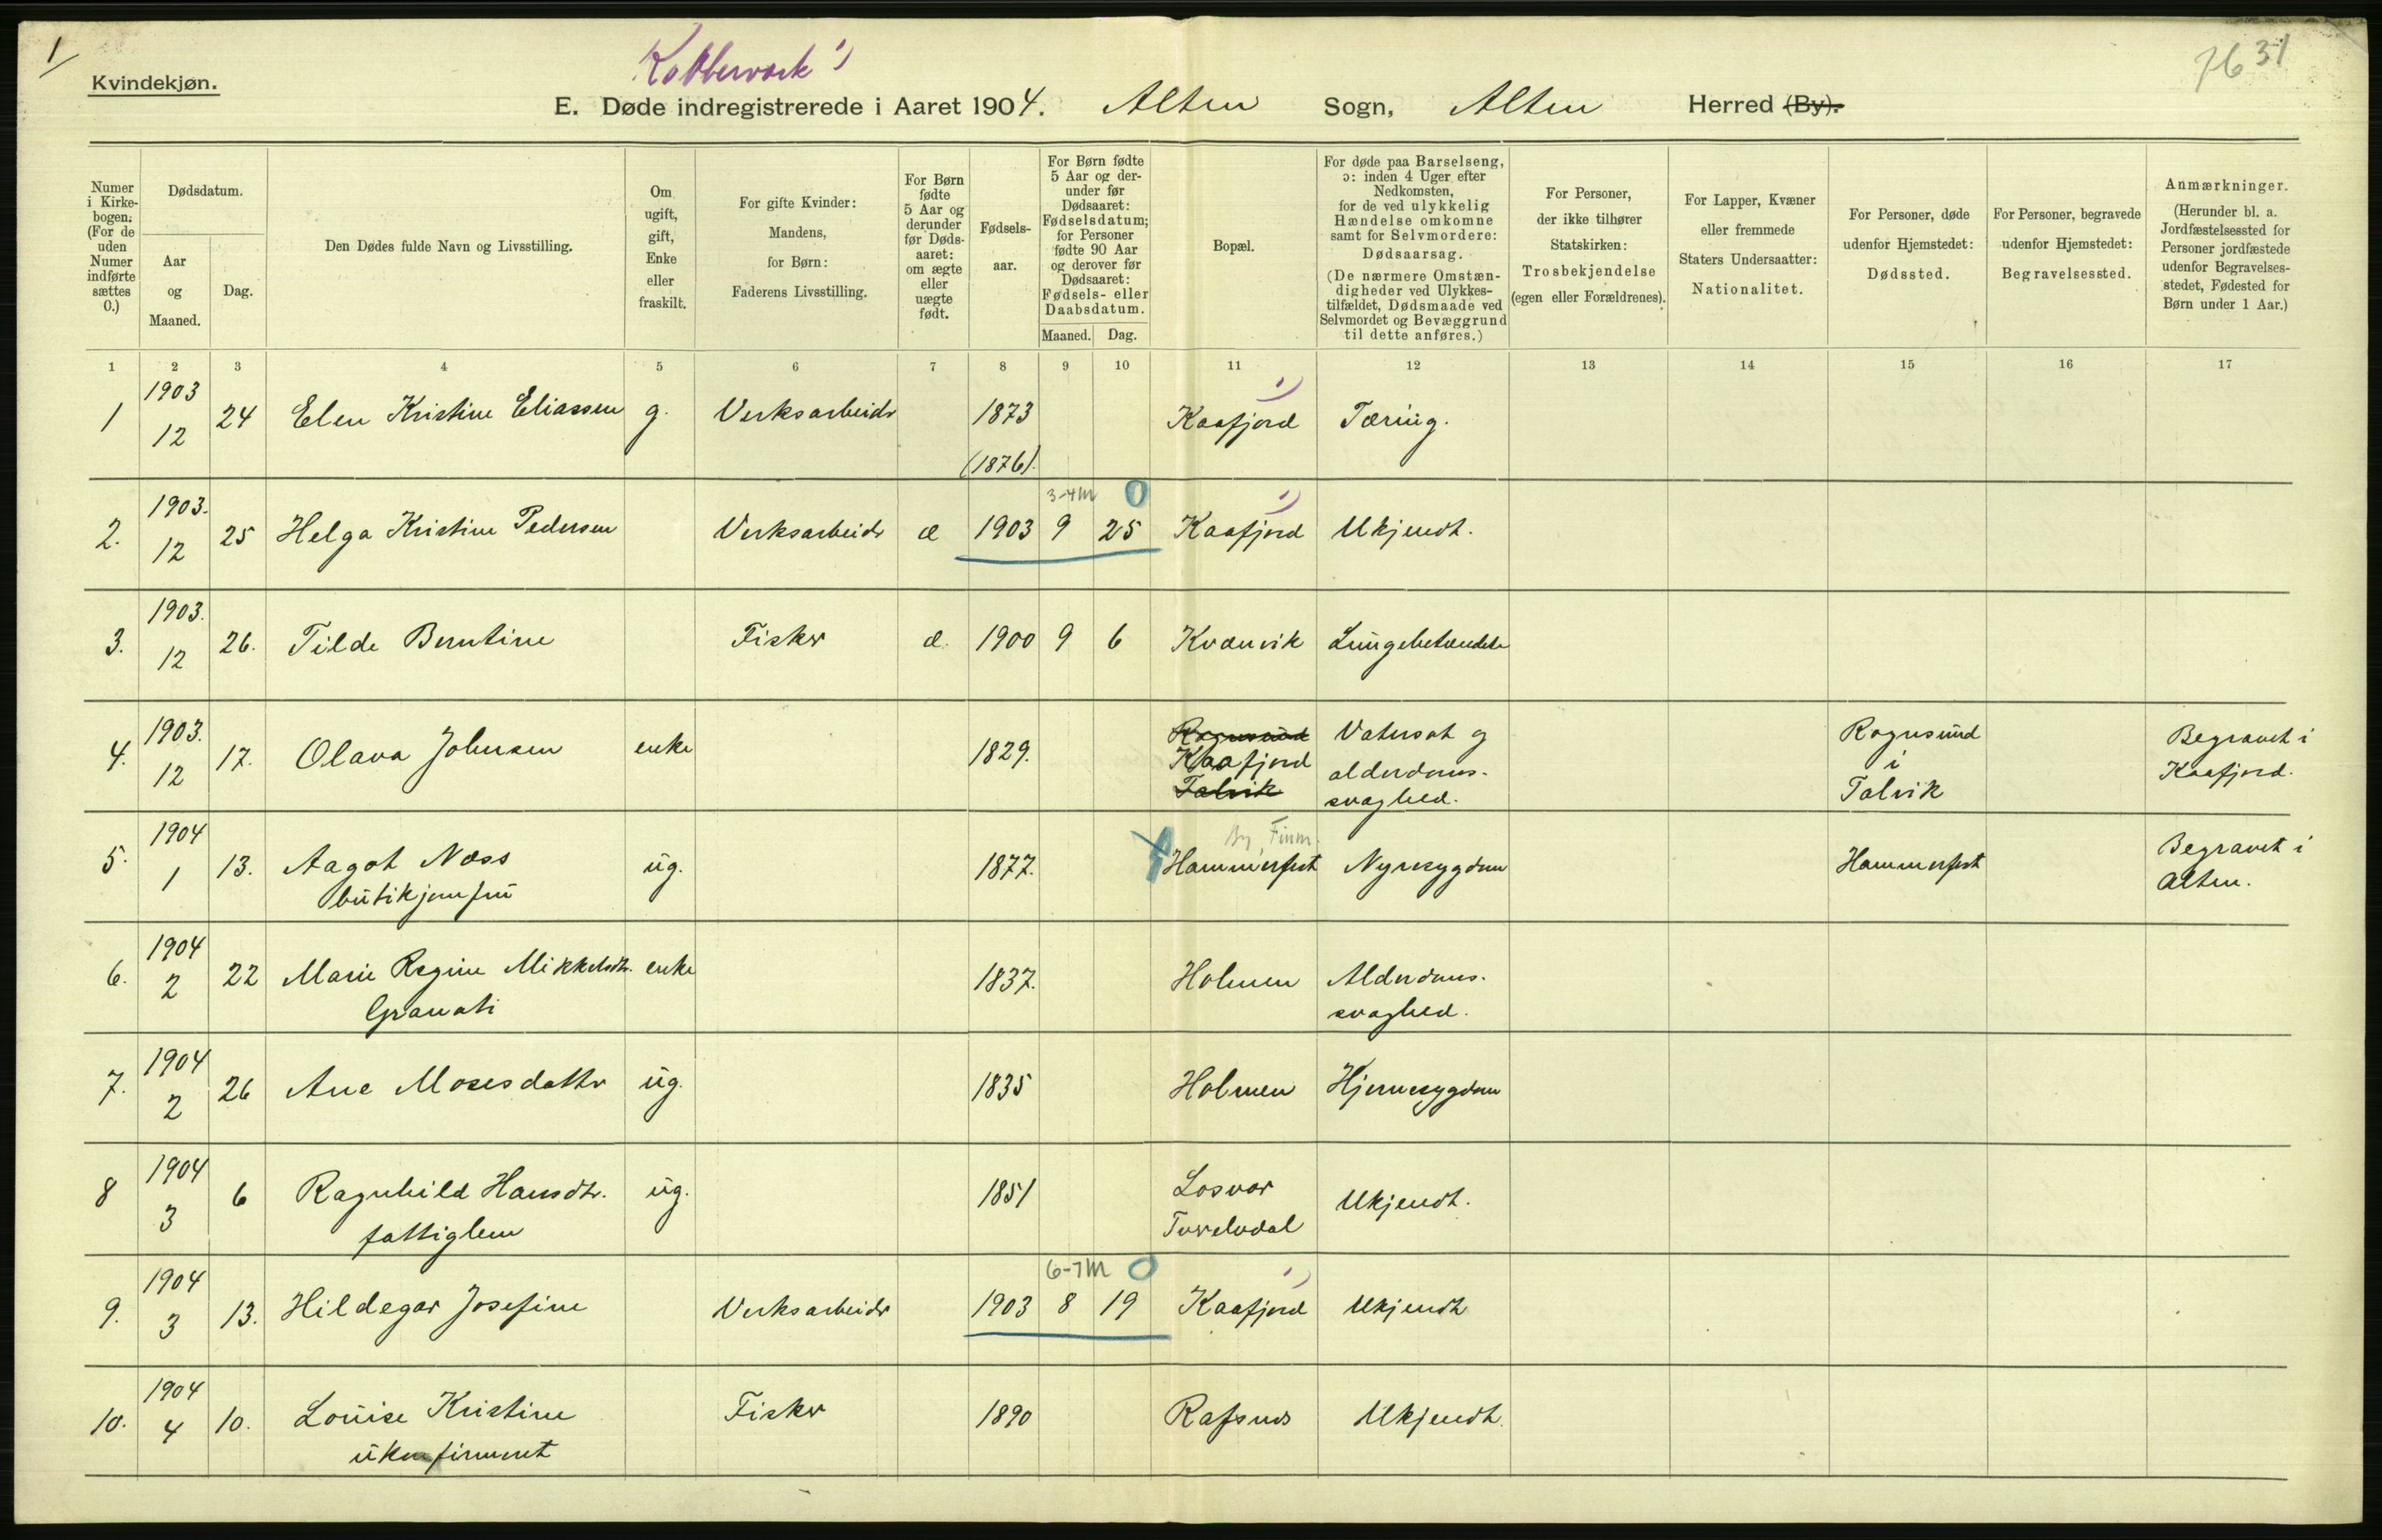 1/
Kvindekjøn.
Kobberverk 1)
7631
E. Døde indregistrerede i Aaret 1904. Alten Sogn, Alten Herred (By).
Numer i Kirke-bogen. (For de uden Numer indførte sættes 0.)
Dødsdatum.
Aar og Maaned.
Dag.
Den Dødes fulde Navn og Livsstilling.
Om ugift, gift, Enke eller fraskilt.
For gifte Kvinder: Mandens, for Børn: Faderens Livsstilling.
For Børn fødte 5 Aar og derunder før Døds-aaret: om ægte eller uægte født.
Fødsels-aar.
For Børn fødte 5 Aar og der-under før Dødsaaret: Fødselsdatum; for Personer fødte 90 Aar og derover før Dødsaaret: Fødsels- eller Daabsdatum.
Maaned.
Dag.
Bopæl.
For døde paa Barselseng, ɔ: inden 4 Uger efter Nedkomsten, for de ved ulykkelig Hændelse omkomne samt for Selvmordere: Dødsaarsag.
(De nærmere Omstæn-digheder ved Ulykkes-tilfældet, Dødsmaade ved Selvmordet og Bevæggrund til dette anføres.)
For Personer, der ikke tilhører Statskirken: Trosbekjendelse (egen eller Forældrenes).
For Lapper, Kvæner eller fremmede Staters Undersaatter: Nationalitet.
For Personer, døde udenfor Hjemstedet: Dødssted.
For Personer, begravede udenfor Hjemstedet: Begravelsessted.
Anmærkninger. (Herunder bl. a. Jordfæstelsessted for Personer jordfæstede udenfor Begravelses-stedet, Fødested for Børn under 1 Aar.)
1 2 3 4 5 6 7 8 9 10 11 12 13 14 15 16 17
1 1903 12 24 Elen Kristine Eliassen g. Verksarbeider 1873 (1876). Kaafjord 1) Tæring.
2. 1903. 12 25 Helga Kristine Pedersen Verksarbeider æ 1903 9 25 3-4 M 0 Kaafjord 1) Ukjendt.
3. 1903. 12 26. Tilde Berntine Fisker æ. 1900 9 6 Kvænvik Lungebetændelse
4. 1903. 12 17. Olava Johnsen enke 1829. Rognsund Kaafjord Talvik Vatersot og alderdoms-svaghed. Rognsund i Talvik Begravet i Kaafjord.
5. 1904 1 13. Aagot Næss butikjomfru ug. 1877. By, Finm. Hammerfest Nyresygdom Hammerfest Begravet i Alten.
6. 1904 2 22 Marie Regine Mikkelsdtr. Granati enke 1837. Holmen Alderdoms-svaghed.
7. 1904 2 26 Ane Mosesdatter ug. 1835 Holmen Hjernesygdom
8 1904 3 6 Ragnhild Hansdtr. fattiglem ug. 1851 Losvar Tverelvdal Ukjendt.
9. 1904 3 13. Hildegar Josefine Verksarbeider 1903 8 19 6-7 M 0 Kaafjord 1) Ukjendt
10. 1904 4 10. Louise Kristine ukonfirmeret Fisker 1890 Rafsnes Ukjendt.